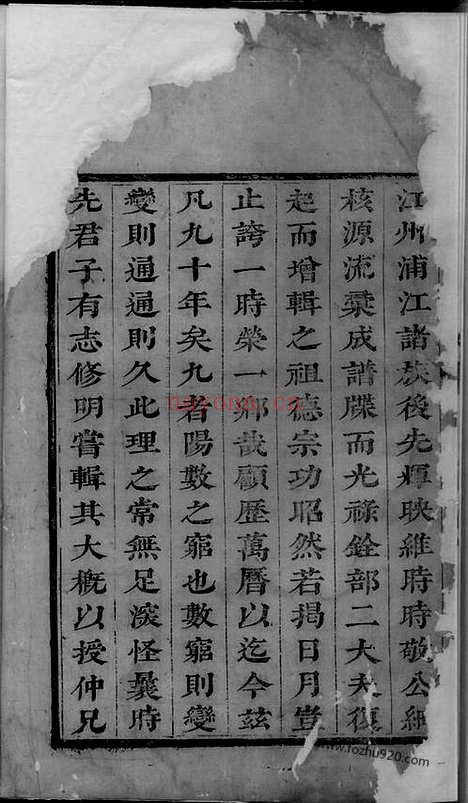 江州浦江諸族後先輝映維時時敬公紬
核源流彚成譜牒而光祿銓部二大夫復
起而增輯之祖德宗功昭然若揭日月豈
止誇一時榮一鄉哉顧歷萬曆以迄今茲
凡九十年矣九者陽數之窮也數窮則變
變則通通則久此理之常無足深怪曩時
先君子有志修明嘗輯其大概以授仲兄
nayona.cn
www.fozhu920.com